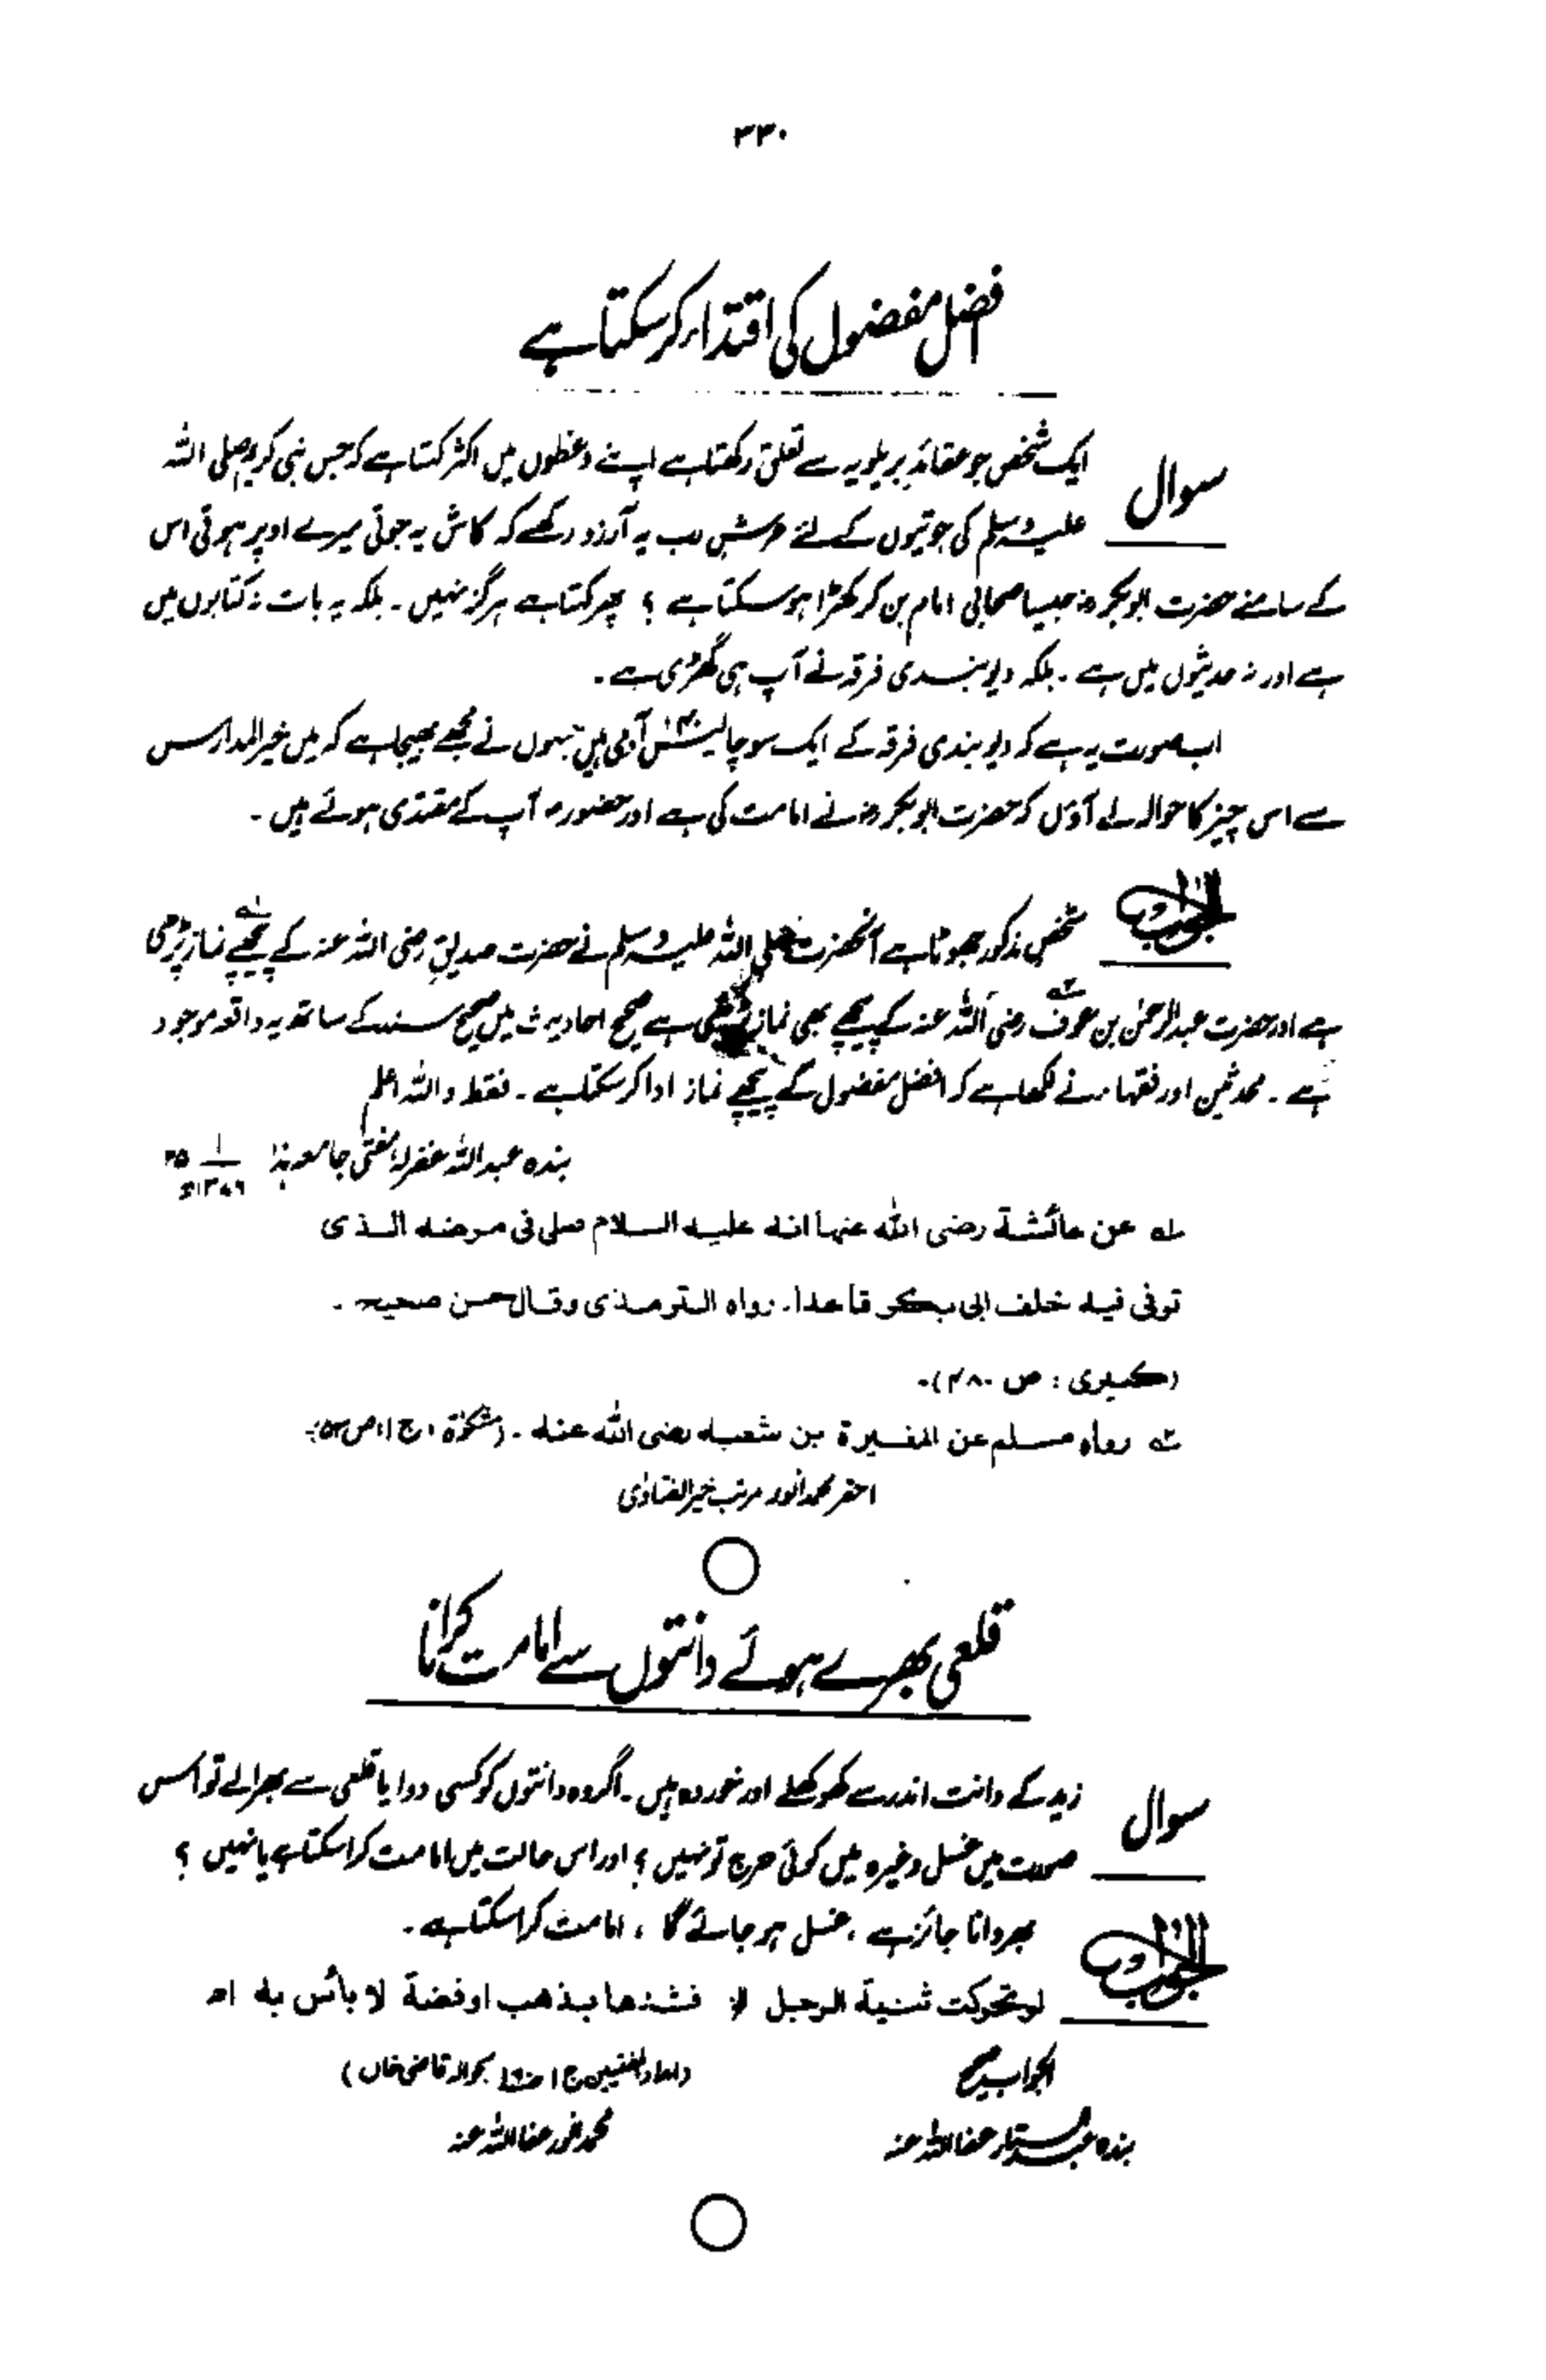 ٣٣٠
افضل مفضول کی اقتداء کر سکتا ہے
سوال ایک شخص جو عقائدِ بریلویہ سے تعلق رکھتا ہے اپنے وعظوں میں اکثر کہتا ہے کہ جس نبی کریم صلی اللہ
علیہ وسلم کی جوتیوں کے لئے عرشِ رب یہ آرزو رکھے کہ کاش یہ جوتی میرے اوپر ہوتی اس
کے سامنے حضرت ابوبکرؓ جیسا صحابی امام بن کر کھڑا ہو سکتا ہے ؟ پھر کہتا ہے ہرگز نہیں ۔ بلکہ یہ بات نہ کتابوں میں
ہے اور نہ حدیثوں میں ہے ۔ بلکہ دیوبندی فرقہ نے آپ ہی گھڑی ہے ۔
اب صورت یہ ہے کہ دیوبندی فرقہ کے ایک سو چالیس آدمی ہیں جنہوں نے مجھے بھیجا ہے کہ میں خیر المدارس
سے اس چیز کا حوالہ لے آؤں کہ حضرت ابوبکرؓ نے امامت کی ہے اور حضورؐ آپ کے مقتدی ہوئے ہیں ۔
الجواب شخص مذکور جھوٹا ہے آنحضرت صلی اللہ علیہ وسلم نے حضرت صدیق رضی اللہ عنہ کے پیچھے نماز پڑھی
ہے اور حضرت عبدالرحمٰن بن عوف رضی اللہ عنہ کے پیچھے بھی نماز پڑھی ہے صحیح احادیث میں صحیح سند کے ساتھ یہ واقعہ موجود
ہے ۔ محدثین اور فقہاء نے لکھا ہے کہ افضل مفضول کے پیچھے نماز ادا کر سکتا ہے ۔ فقط واللہ اعلم
بندہ عبداللہ غفرلہ مفتی جامعہ ہذا
لہ عن عائشة رضی اللہ عنہا انه علیه السلام صلی فی مرضه الذی
توفی فیه خلف ابی بکر قاعدا۔ رواه الترمذی وقال حسن صحیح ۔
(کبیری : ص ۴۸۰)۔
ٹہ رواه مسلم عن المغیرة بن شعبه رضی اللہ عنه ۔ (مشکوٰۃ ، ج ۱، ص ۵۳)۔
احقر محمد انور مرتب خیر الفتاویٰ
قلعی بھرے ہوئے دانتوں سے امامت کرانا
سوال زید کے دانت اندر سے کھوکھلے اور خوردہ ہیں ۔ اگر وہ دانتوں کو کسی دوا یا قلعی سے بھرالے تو اس
صورت میں غسل وغیرہ میں کوئی حرج تو نہیں ؟ اور اس حالت میں امامت کرا سکتا ہے یا نہیں ؟
الجواب بھروانا جائز ہے ، غسل ہو جائے گا ، امامت کرا سکتا ہے ۔
لو تحرکت ثنیة الرجل فشدها بذهب او فضة لا بأس به اھ
(امداد المفتیین ج ۱ بحوالہ قاضی خاں)
الجواب صحیح
محمد انور عفا اللہ عنہ
بندہ عبدالستار عفا اللہ عنہ